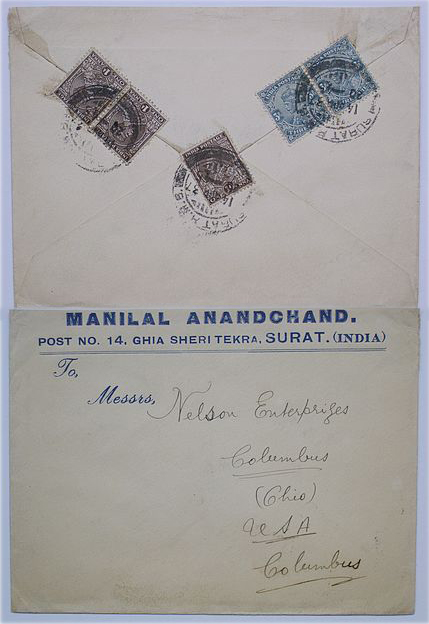 SURAT R.M.S.
14
SURAT R
14
MANILAL ANANDCHAND.
POST NO. 14, GHIA SHERI TEKRA, SURAT. (INDIA)
To,
Messrs, Nelson Enterprizes
Columbus
(Ohio)
USA
Columbus